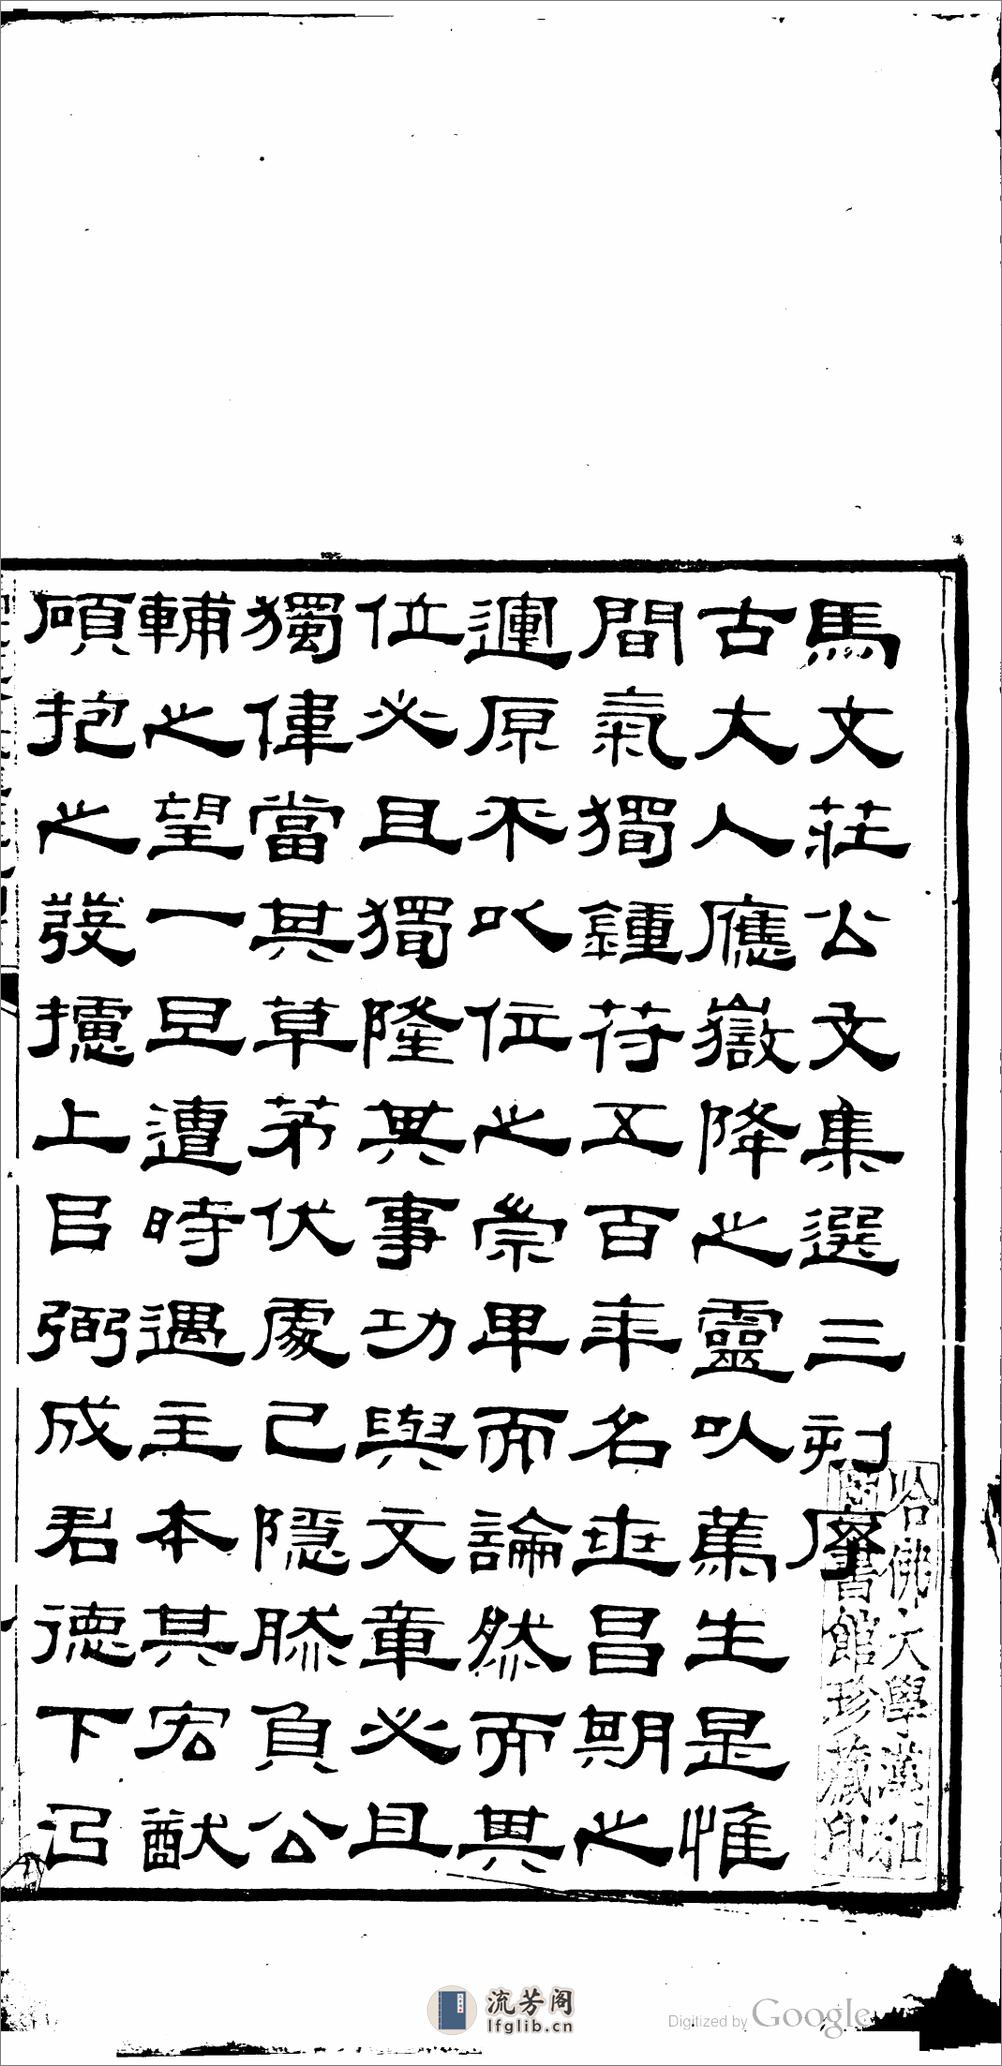 馬文莊公文集選三刻序
古大人應嶽降之靈以篤生是惟
間氣獨鍾苻五百年名世昌期之
運原不以位之崇卑而論然而畀
位必且獨隆其事功與文章必且
獨偉當其草茅伏處己隱肰負公
輔之望一旦遭時遇主本其宏猷
碩抱之發攄上㠯弼成君德下㠯
哈佛大學漢和
圖書館珍藏印
流芳阁
lfglib.cn
Digitized by Google